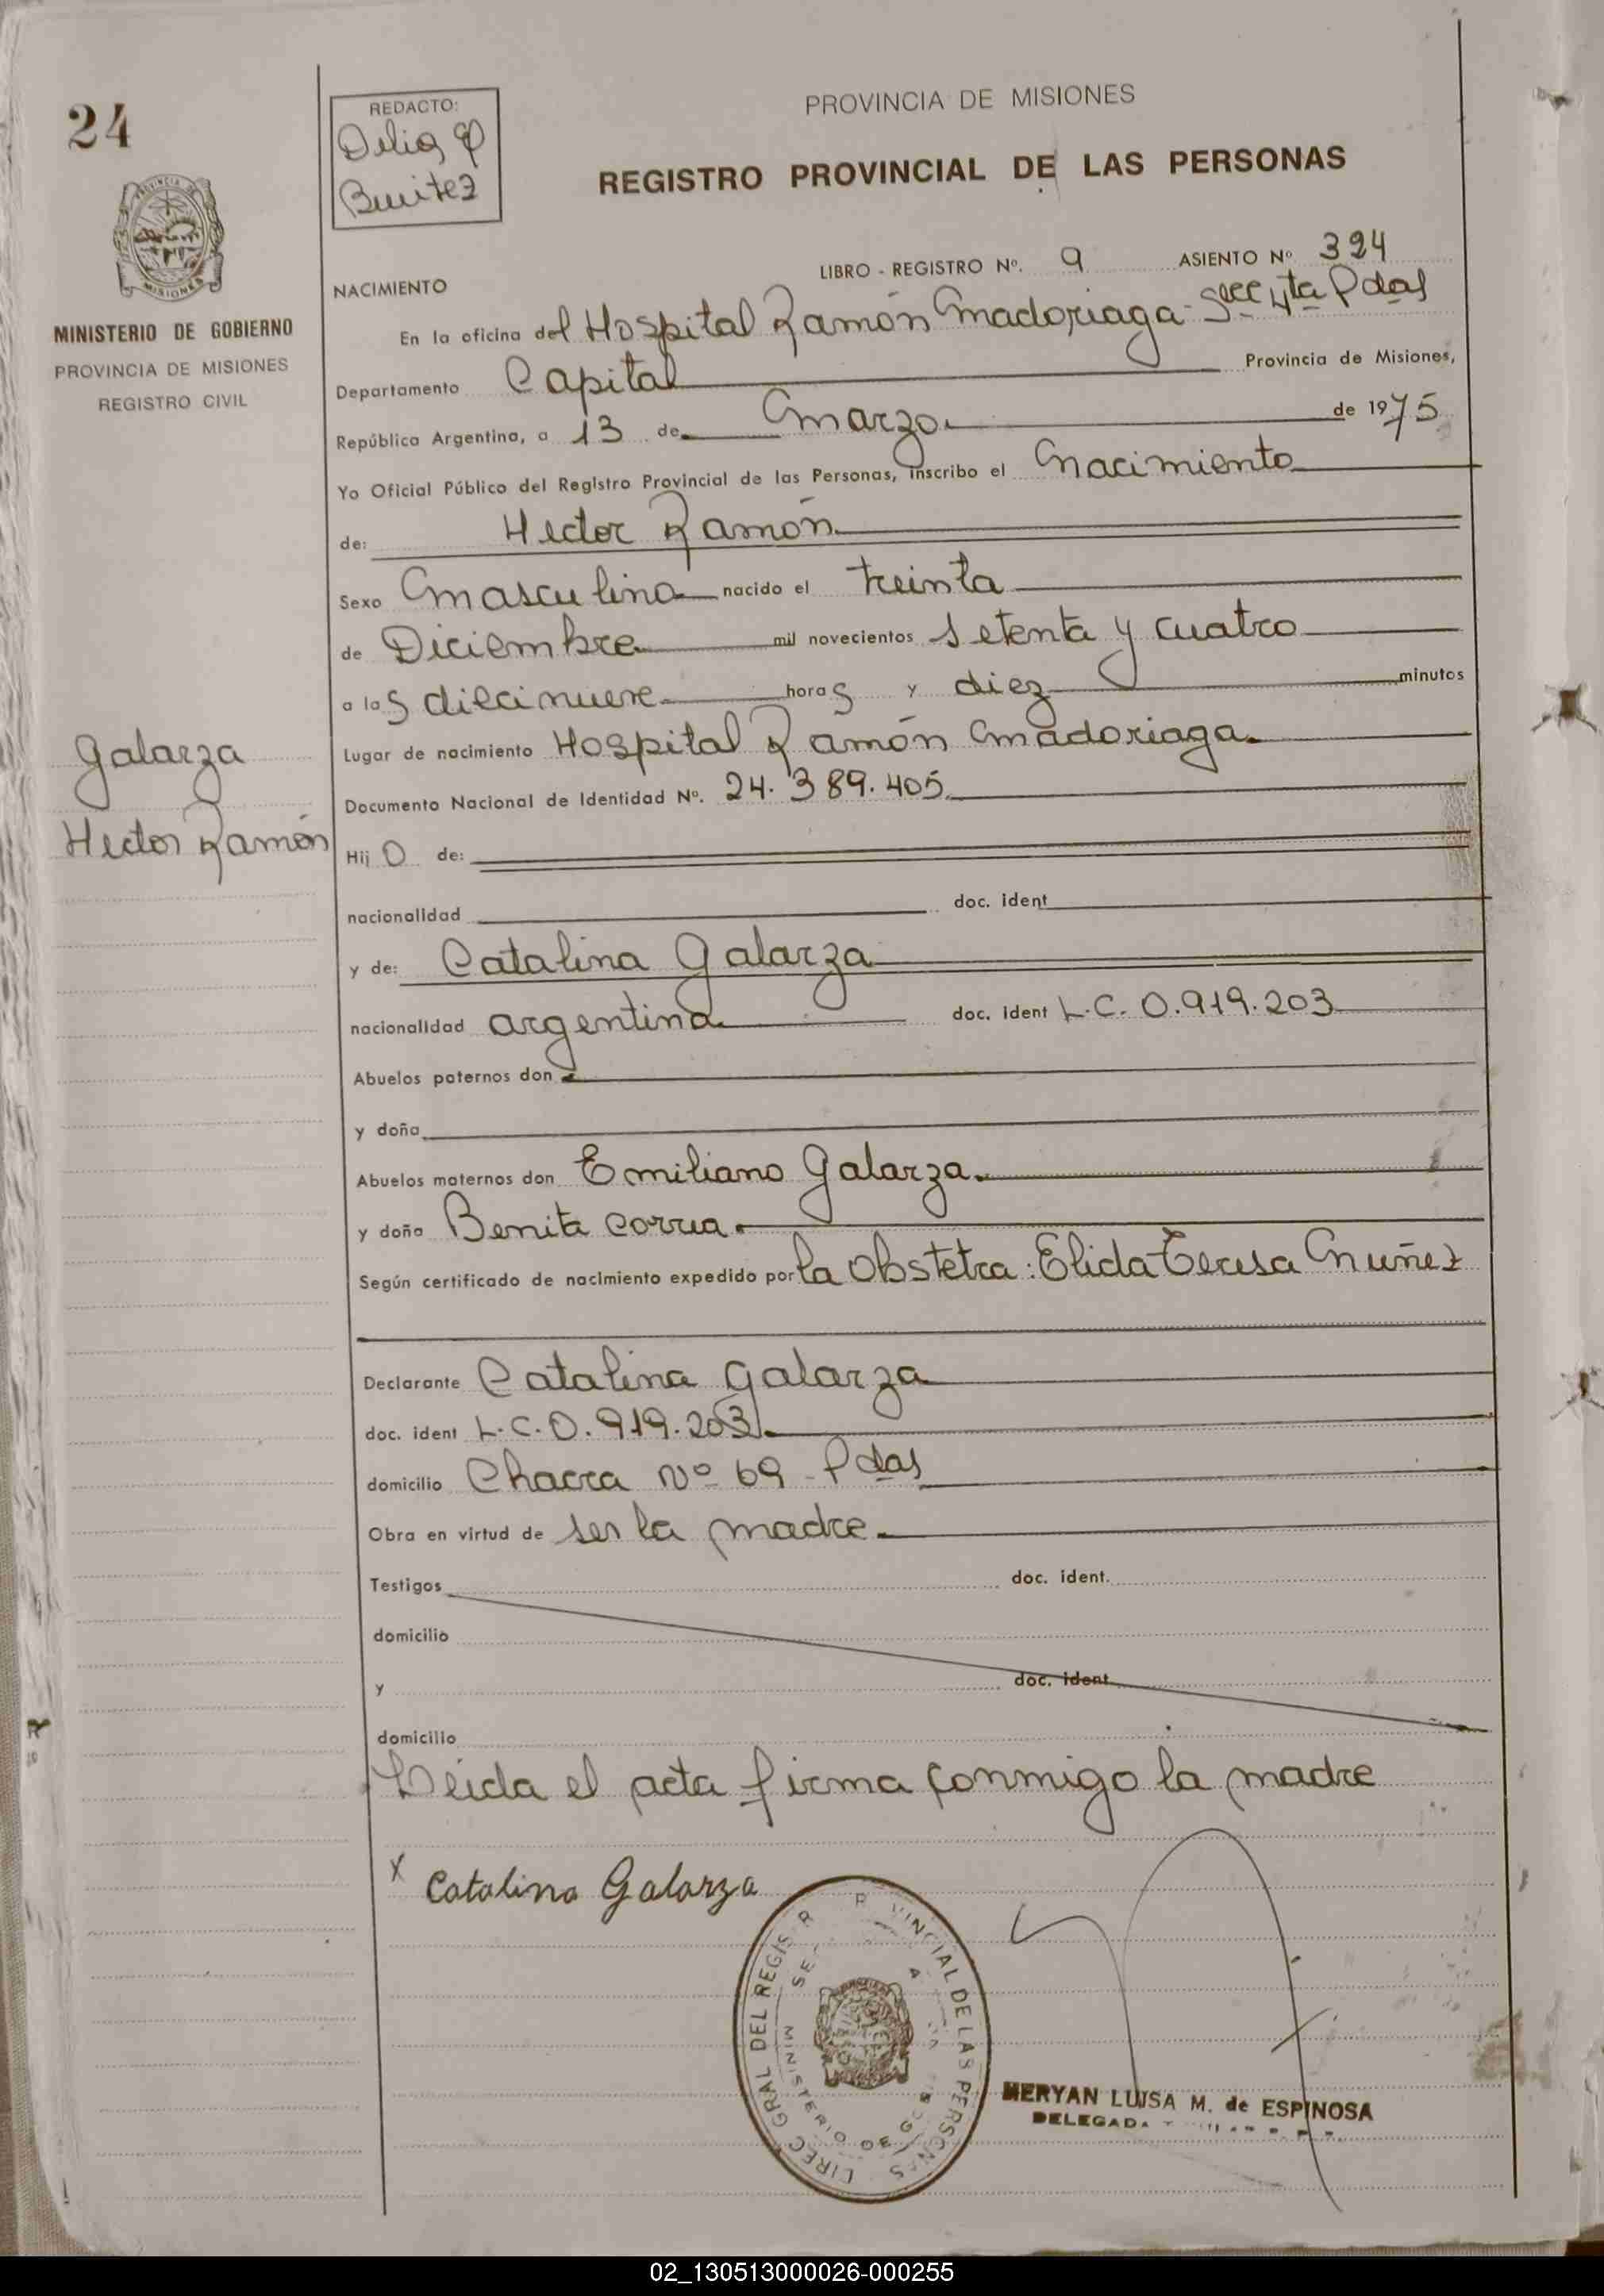 24
REDACTO:
Delia
Benitez
PROVINCIA DE MISIONES
REGISTRO PROVINCIAL DE LAS PERSONAS
MINISTERIO DE GOBIERNO
PROVINCIA DE MISIONES
REGISTRO CIVIL
LIBRO - REGISTRO Nº. 9 ASIENTO Nº 394
NACIMIENTO
En la oficina del Hospital Ramón Madoriaga - Secc 4ta Pdas
Departamento Capital Provincia de Misiones,
República Argentina, a 13 de Marzo de 1975
Yo Oficial Público del Registro Provincial de las Personas, inscribo el Nacimiento
de: Hector Ramón
Sexo Masculino nacido el treinta
de Diciembre mil novecientos setenta y cuatro
a las diecinueve horas y diez minutos
Lugar de nacimiento Hospital Ramón Madoriaga.
Galarza
Hector Ramón
Documento Nacional de Identidad Nº. 24.389.405
Hijo de:
nacionalidad doc. ident
y de: Catalina Galarza
nacionalidad argentina doc. ident L.C. 0.919.203
Abuelos paternos don
y doña
Abuelos maternos don Emiliano Galarza.
y doña Benita Correa.
Según certificado de nacimiento expedido por la Obstetra: Elida Teresa Nuñez
Declarante Catalina Galarza
doc. ident L.C.0.919.203.
domicilio Chacra Nº 69 - Pdas
Obra en virtud de ser la madre.
Testigos doc. ident.
domicilio
y doc. ident
domicilio
Leida el acta firma conmigo la madre
X Catalina Galarza
MERYAN LUISA M. de ESPINOSA
DELEGADA
02_130513000026-000255